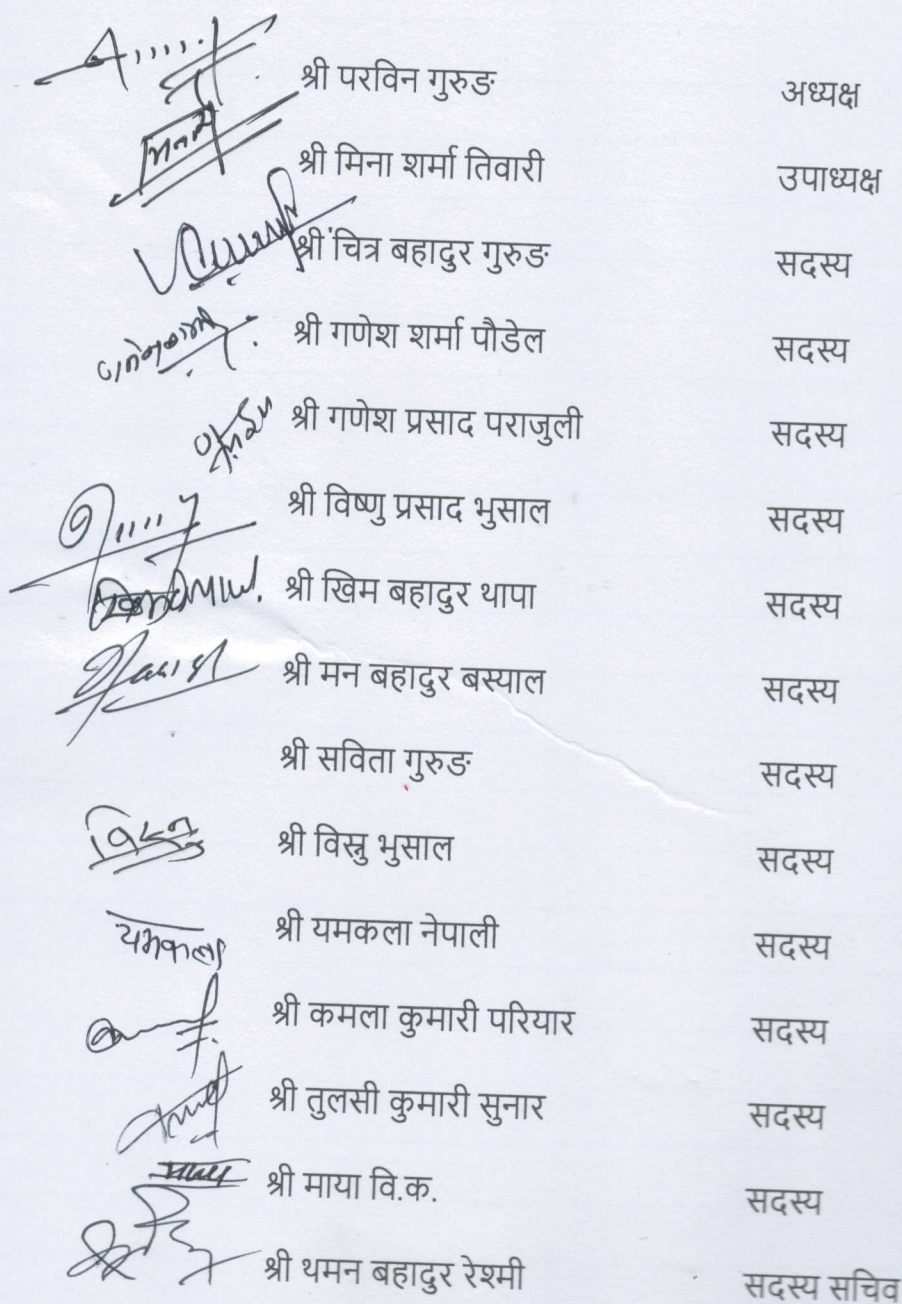 श्री परविन गुरुङ अध्यक्ष
श्री मिना शर्मा तिवारी उपाध्यक्ष
श्री चित्र बहादुर गुरुङ सदस्य
श्री गणेश शर्मा पौडेल सदस्य
श्री गणेश प्रसाद पराजुली सदस्य
श्री विष्णु प्रसाद भुसाल सदस्य
श्री खिम बहादुर थापा सदस्य
श्री मन बहादुर बस्याल सदस्य
श्री सविता गुरुङ सदस्य
श्री विस्नु भुसाल सदस्य
यमकला श्री यमकला नेपाली सदस्य
श्री कमला कुमारी परियार सदस्य
श्री तुलसी कुमारी सुनार सदस्य
श्री माया वि.क. सदस्य
श्री थमन बहादुर रेश्मी सदस्य सचिव